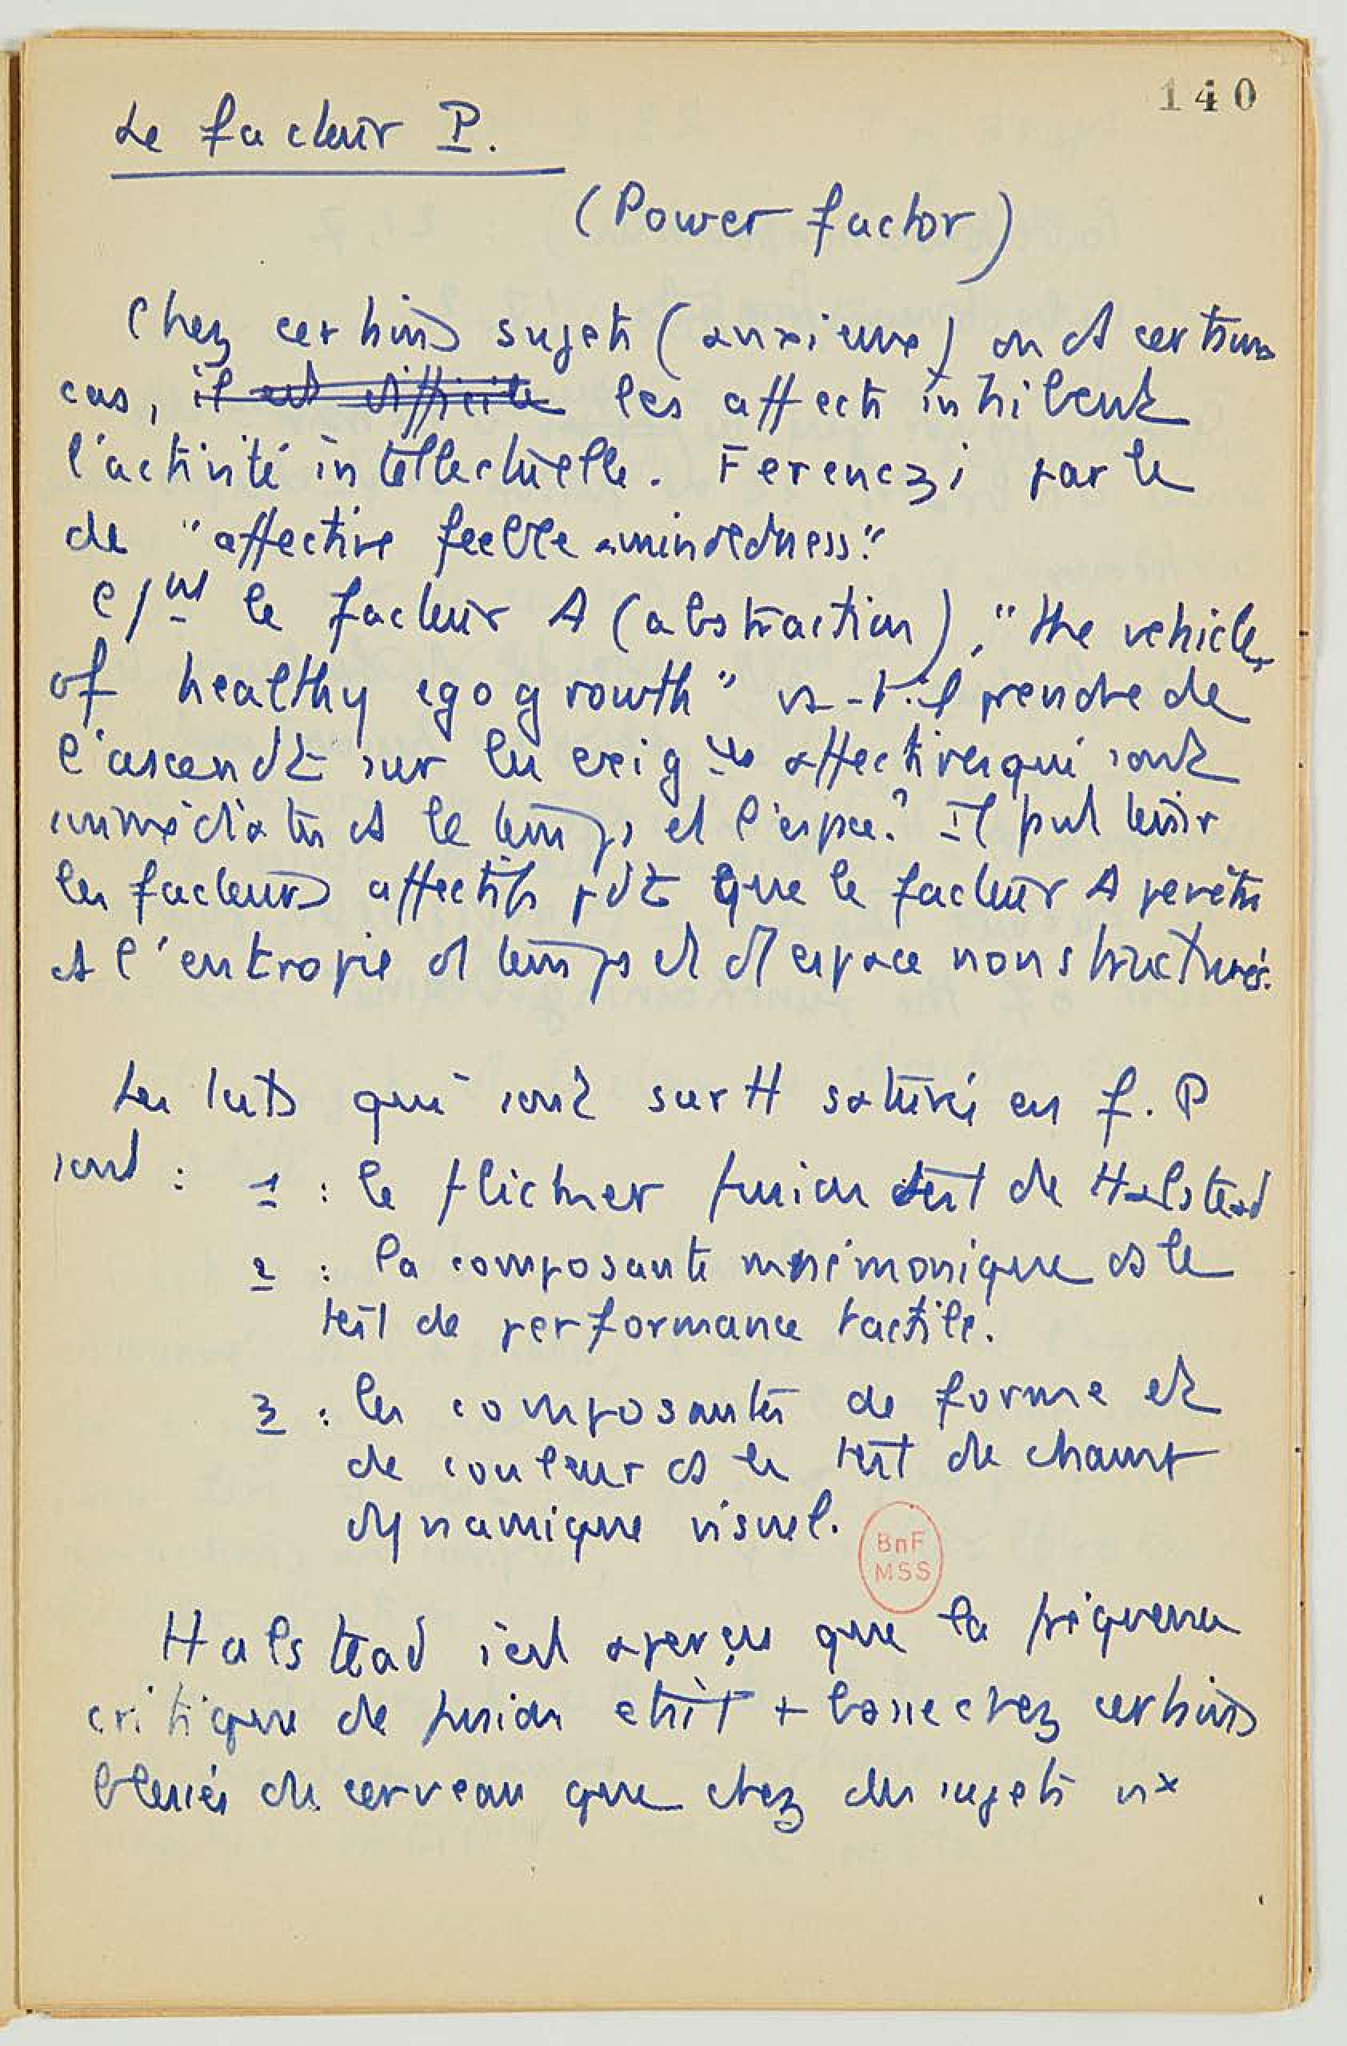 140
Le facteur P.
(Power factor)
Chez certains sujets (anxieux) ou ds certains
cas, il est difficile les affects inhibent
l'activité intellectuelle. Ferenczi parle
de "affective feeble-mindedness."
le facteur A (abstraction), "the vehicle
of healthy ego growth" va-t-il prendre de
l'ascendt sur les exig affectives qui sont
immédiates ds le temps et l'espce? Il peut tenir
les facteurs affectifs pdt que le facteur A pénètre
ds l'entropie d temps et d'espace non structurés.
Les tests qui sont surtt saturés en f. P
sont :
1 : le flicker fusion test de Halstead
2 : la composante mnémonique ds le
test de performance tactile.
3 : les composantes de forme et
de couleur ds le test de champ
dynamique visuel.
BnF
MSS
Halstead s'est aperçu que la fréquence
critique de fusion était + basse chez certains
blessés du cerveau que chez des sujets nx